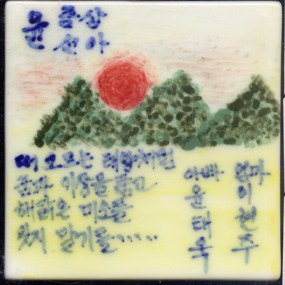 윤 준상
선아
떠오르는 태양처럼
꿈과 품고
해맑은 미소를
잊지 말기를......
아빠 윤태욱
엄마 이현주